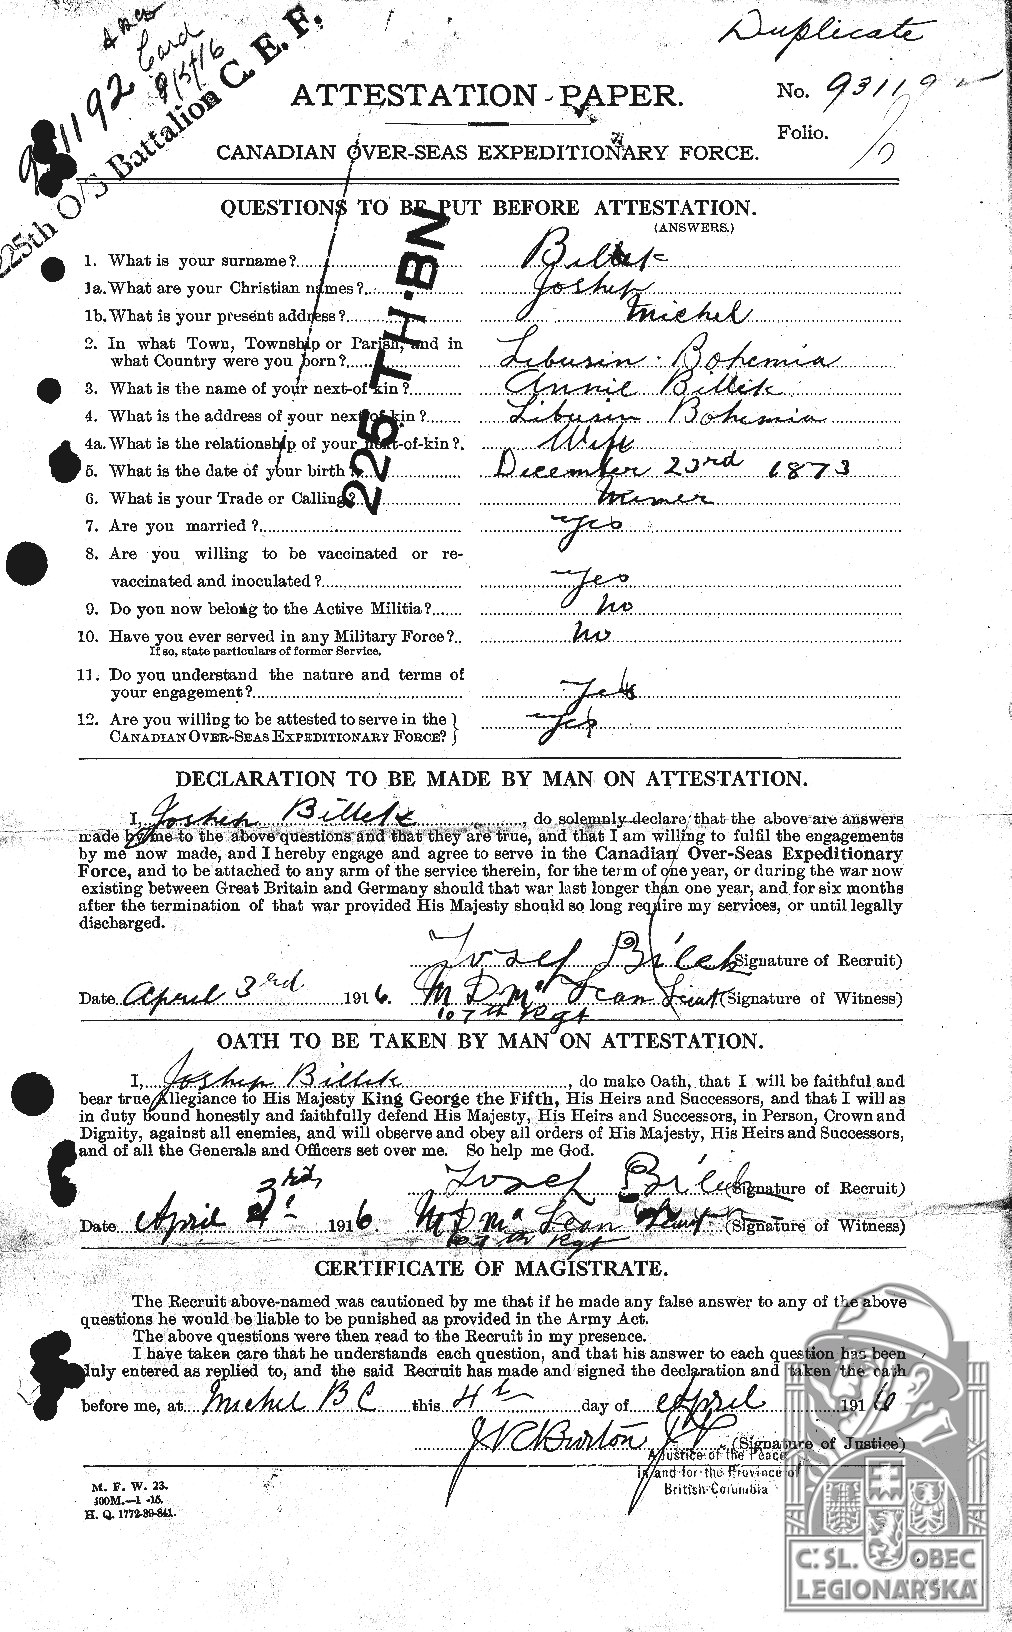 Duplicate
Card
931192
225th O/S Battalion C. E. F.
ATTESTATION PAPER.
No. 931192
Folio.
CANADIAN OVER-SEAS EXPEDITIONARY FORCE.
QUESTIONS TO BE PUT BEFORE ATTESTATION.
(ANSWERS.)
225TH·BN
1. What is your surname? Billek
1a. What are your Christian names? Joshep
1b. What is your present address? Michel
2. In what Town, Township or Parish, and in
what Country were you born? Libusin · Bohemia
3. What is the name of your next-of-kin? Annie Billek
4. What is the address of your next-of-kin? Libusin Bohemia
4a. What is the relationship of your next-of-kin? Wife
5. What is the date of your birth? December 23rd 1873
6. What is your Trade or Calling? Miner
7. Are you married? Yes
8. Are you willing to be vaccinated or re-
vaccinated and inoculated? Yes
9. Do you now belong to the Active Militia? No
10. Have you ever served in any Military Force? No
If so, state particulars of former Service.
11. Do you understand the nature and terms of
your engagement? Yes
12. Are you willing to be attested to serve in the
CANADIAN OVER-SEAS EXPEDITIONARY FORCE? Yes
DECLARATION TO BE MADE BY MAN ON ATTESTATION.
I, Joshep Billek, do solemnly declare that the above are answers
made by me to the above questions and that they are true, and that I am willing to fulfil the engagements
by me now made, and I hereby engage and agree to serve in the Canadian Over-Seas Expeditionary
Force, and to be attached to any arm of the service therein, for the term of one year, or during the war now
existing between Great Britain and Germany should that war last longer than one year, and for six months
after the termination of that war provided His Majesty should so long require my services, or until legally
discharged.
Josef Bílek (Signature of Recruit)
Date April 3rd 1916. M D McLean Lieut (Signature of Witness)
107th Rgt
OATH TO BE TAKEN BY MAN ON ATTESTATION.
I, Joshep Billek, do make Oath, that I will be faithful and
bear true Allegiance to His Majesty King George the Fifth, His Heirs and Successors, and that I will as
in duty bound honestly and faithfully defend His Majesty, His Heirs and Successors, in Person, Crown and
Dignity, against all enemies, and will observe and obey all orders of His Majesty, His Heirs and Successors,
and of all the Generals and Officers set over me. So help me God.
Josef Bílek (Signature of Recruit)
Date April 3rd 1916. M D McLean Lieut (Signature of Witness)
107th Rgt
CERTIFICATE OF MAGISTRATE.
The Recruit above-named was cautioned by me that if he made any false answer to any of the above
questions he would be liable to be punished as provided in the Army Act.
The above questions were then read to the Recruit in my presence.
I have taken care that he understands each question, and that his answer to each question has been
duly entered as replied to, and the said Recruit has made and signed the declaration and taken the oath
before me, at Michel B C this 4th day of April 1916
J N Burton J P (Signature of Justice)
A Justice of the Peace
in and for the Province of
British Columbia
M. F. W. 23.
H. Q. 1772-39-841.
Č. SL. OBEC
LEGIONÁŘSKÁ